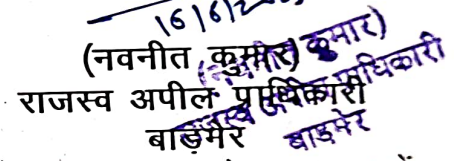 16/6/2
(नवनीत कुमार)
राजस्व अपील प्राधिकारी
बाड़मेर
(नवनीत कुमार)
राजस्व अपील प्राधिकारी
बाड़मेर